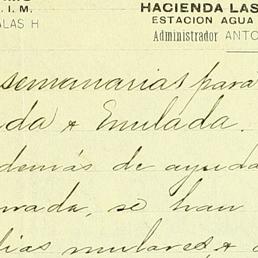 . I. M.
ALAS H
HACIENDA LAS
ESTACION AGUA
Administrador ANTO
semanarias para
da & Emulada.
demás de ayuda
rada, se han
lias mulares, &